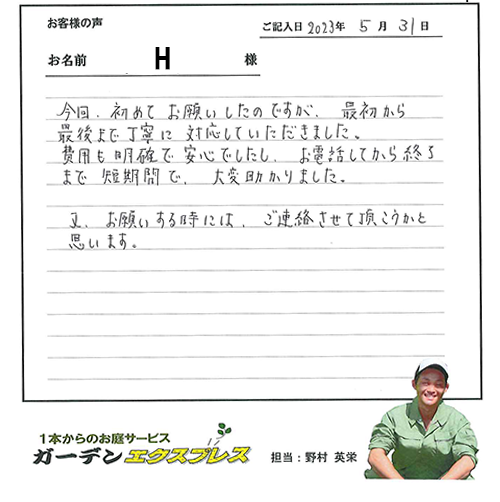 お客様の声
ご記入日 2023年 5月 31日
お名前 H 様
今回、初めてお願いしたのですが、最初から
最後まで丁寧に対応していただきました。
費用も明確で安心でしたし、お電話してから終了
まで短期間で、大変助かりました。
又、お願いする時には、ご連絡させて頂こうかと
思います。
1本からのお庭サービス
ガーデンエクスプレス
担当：野村 英栄